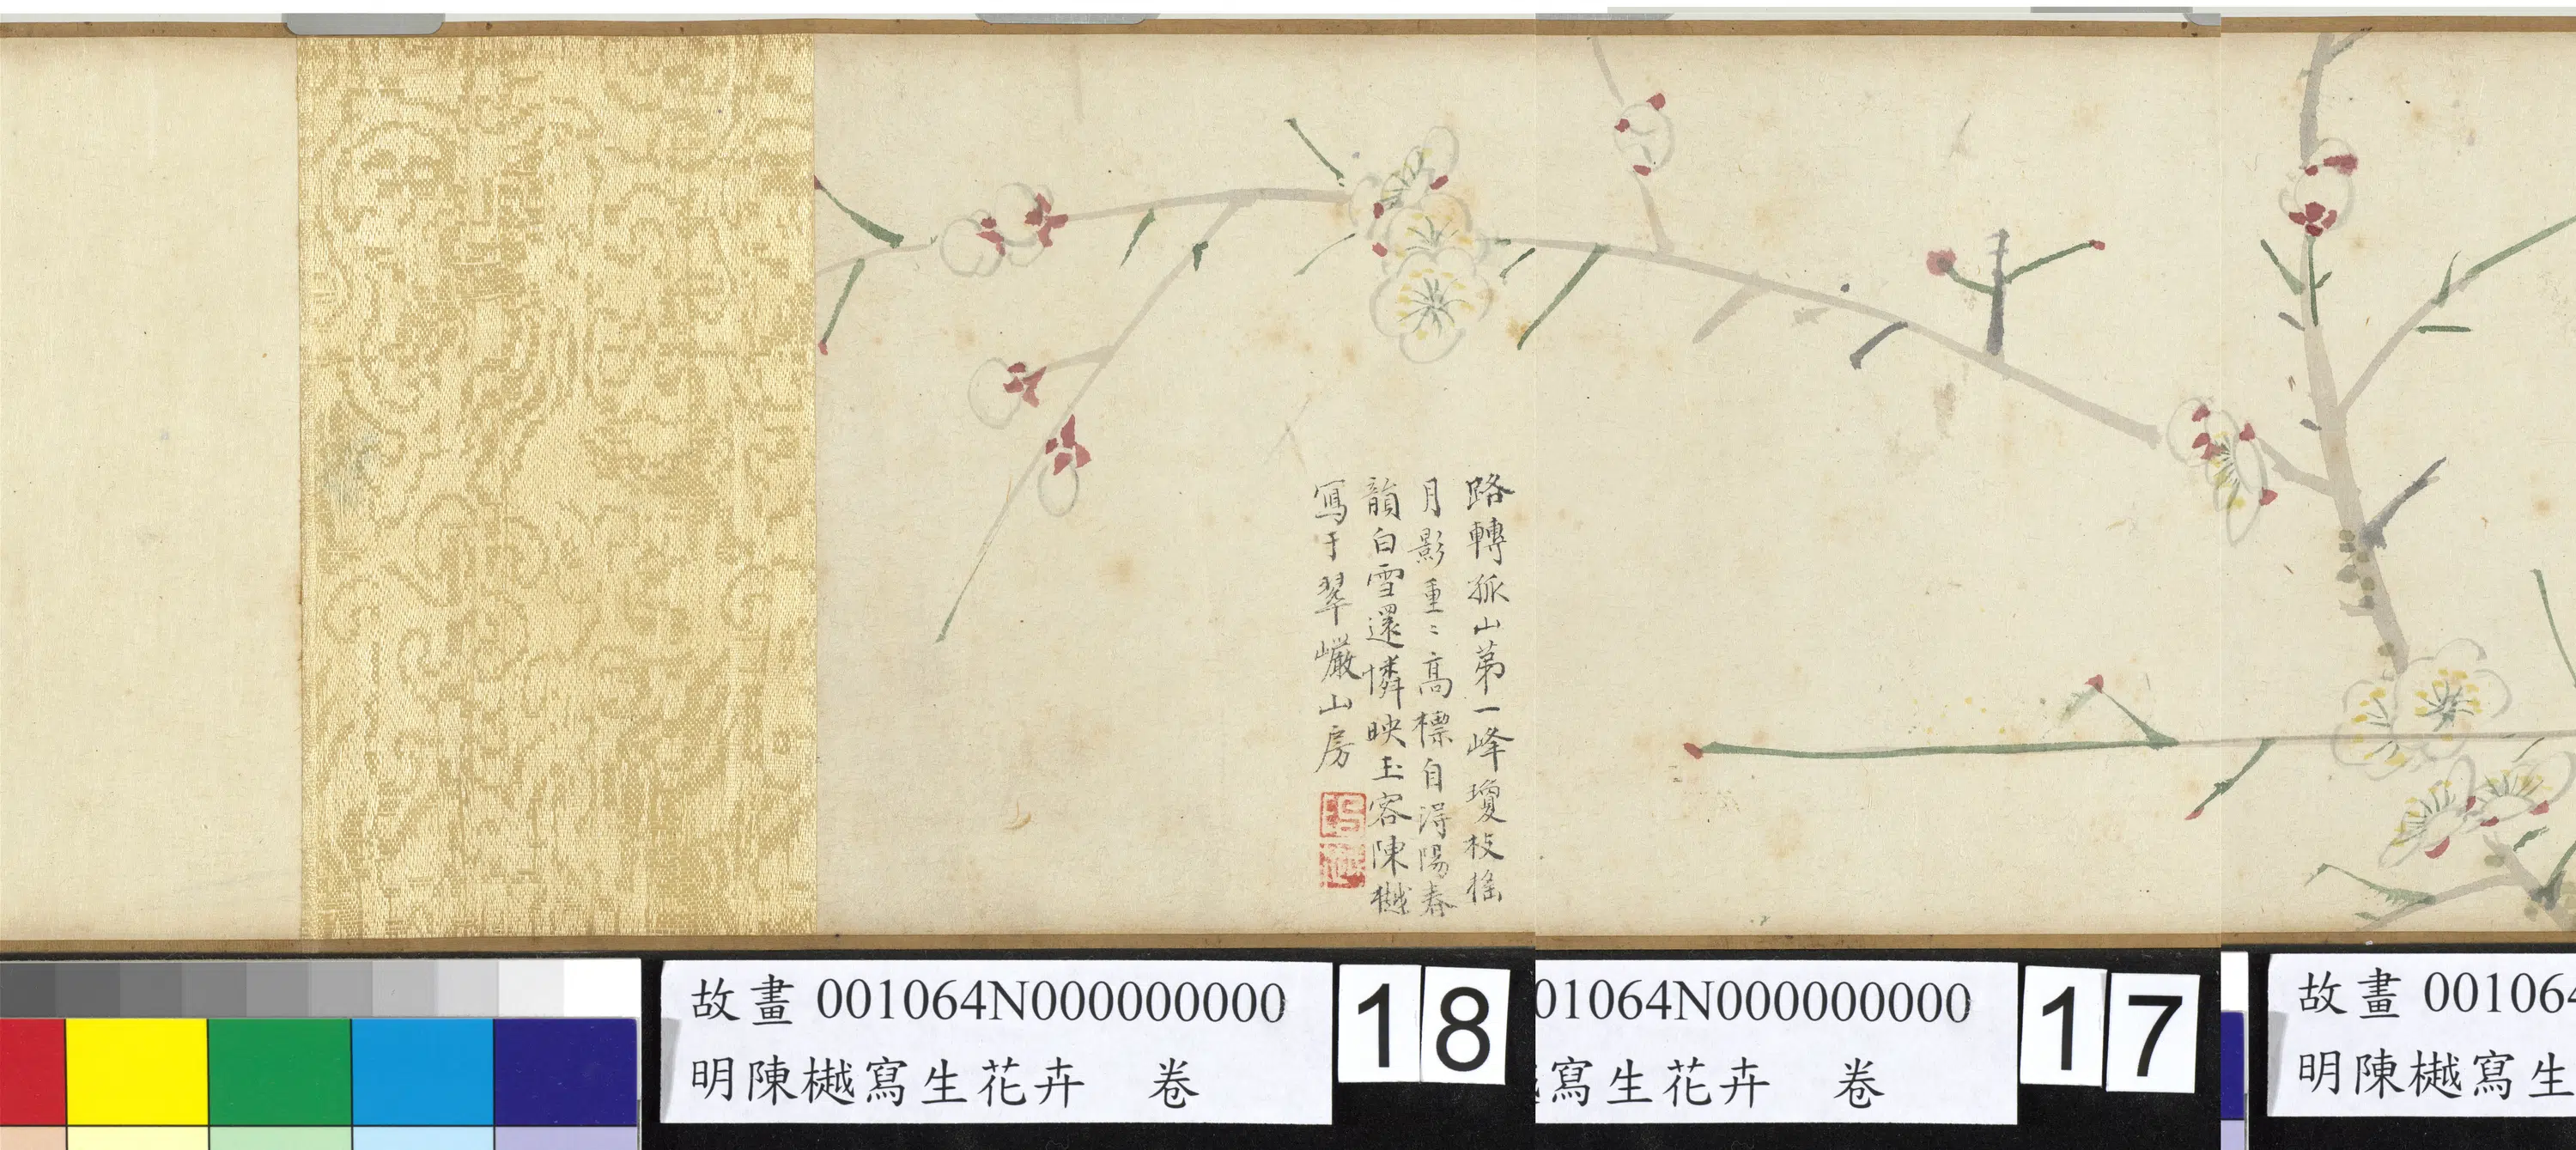 路轉孤山第一峰瓊枝搖
月影重〻高標自得陽春
韻白雪還憐映玉容陳樾
寫于翠巖山房
故畫 001064N000000000
明陳樾寫生花卉 卷
18
01064N000000000
寫生花卉 卷
17
故畫 001064
明陳樾寫生